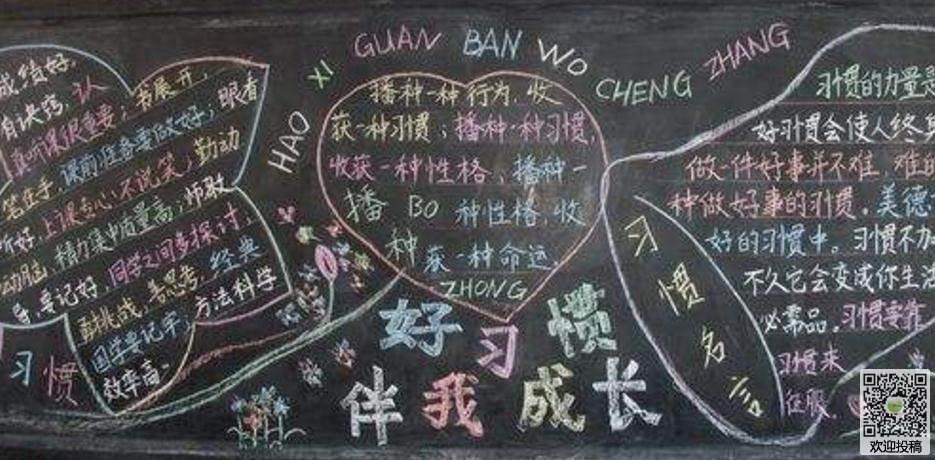 HAO XI GUAN BAN WO CHENG ZHANG
成绩好,
有诀窍,认
真听课很重要;书展开,
笔在手,课前准备要做好;眼看
听好,上课专心不说笑;勤动
动脑,精力集中质量高;师
要记好,同学之间多探讨,
勤挑战,善思考,经典
国学要记牢,方法科学
效率高。
习惯
播种一种行为,收
获一种习惯;播种一种习惯,
收获一种性格;播种一
种性格,收
获一种命运。
播 BO
种
ZHONG
好习惯
伴我成长
习惯名言
习惯的力量是
好习惯会使人终身
做一件好事并不难,难的
种做好事的习惯。美德
好的习惯中。习惯不加
不久它会变成你生活
必需品。习惯要靠
习惯来
征服。
欢迎投稿